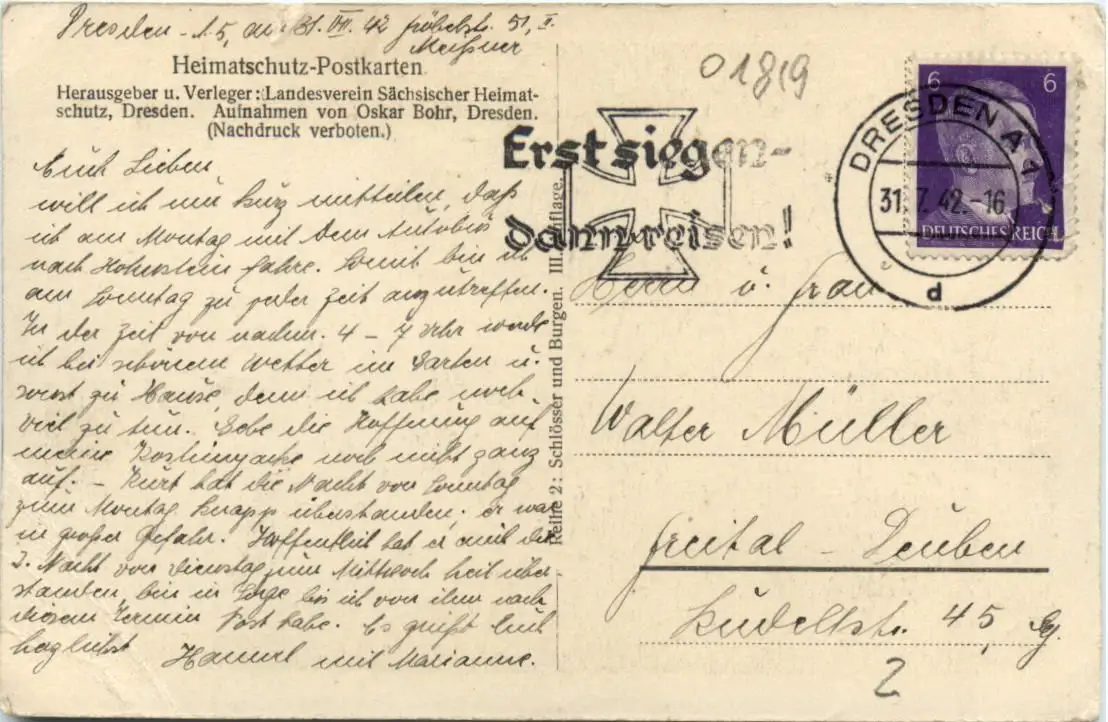 Dresden - A. 5, am 31. VII. 42 Fröbelstr. 51, II.
Meißner
Heimatschutz-Postkarten
Herausgeber u. Verleger: Landesverein Sächsischer Heimat-
schutz, Dresden. Aufnahmen von Oskar Bohr, Dresden.
(Nachdruck verboten.)
Euch Lieben
will ich nur kurz mitteilen, daß
ich am Montag mit dem Autobus
nach Hohnstein fahre. Somit bin ich
am Sonntag zu jeder Zeit anzutreffen.
In der Zeit von nachm. 4 - 7 Uhr werde
ich bei schönem Wetter im Garten u.
sonst zu Hause, denn ich habe noch
viel zu tun. Gebe die Hoffnung auf
meine noch nicht ganz
auf. - Kurt hat die Nacht von Sonntag
zum Montag knapp überstanden, er war
in großer Gefahr. Hoffentlich hat er auch die
2. Nacht von Dienstag zum Mittwoch heil über-
standen, bin in Sorge bis ich von ihm nach
diesem Termin Post habe. Es grüßt Euch
herzlichst Hannel mit Marianne.
Reihe 2: Schlösser und Burgen. III. Auflage.
01819
Erst siegen -
dann reisen!
6 6
DEUTSCHES REICH
DRESDEN A 1
31.7.42.-16
d
Herrn u. Frau
Walter Müller
Freital - Deuben
45
2